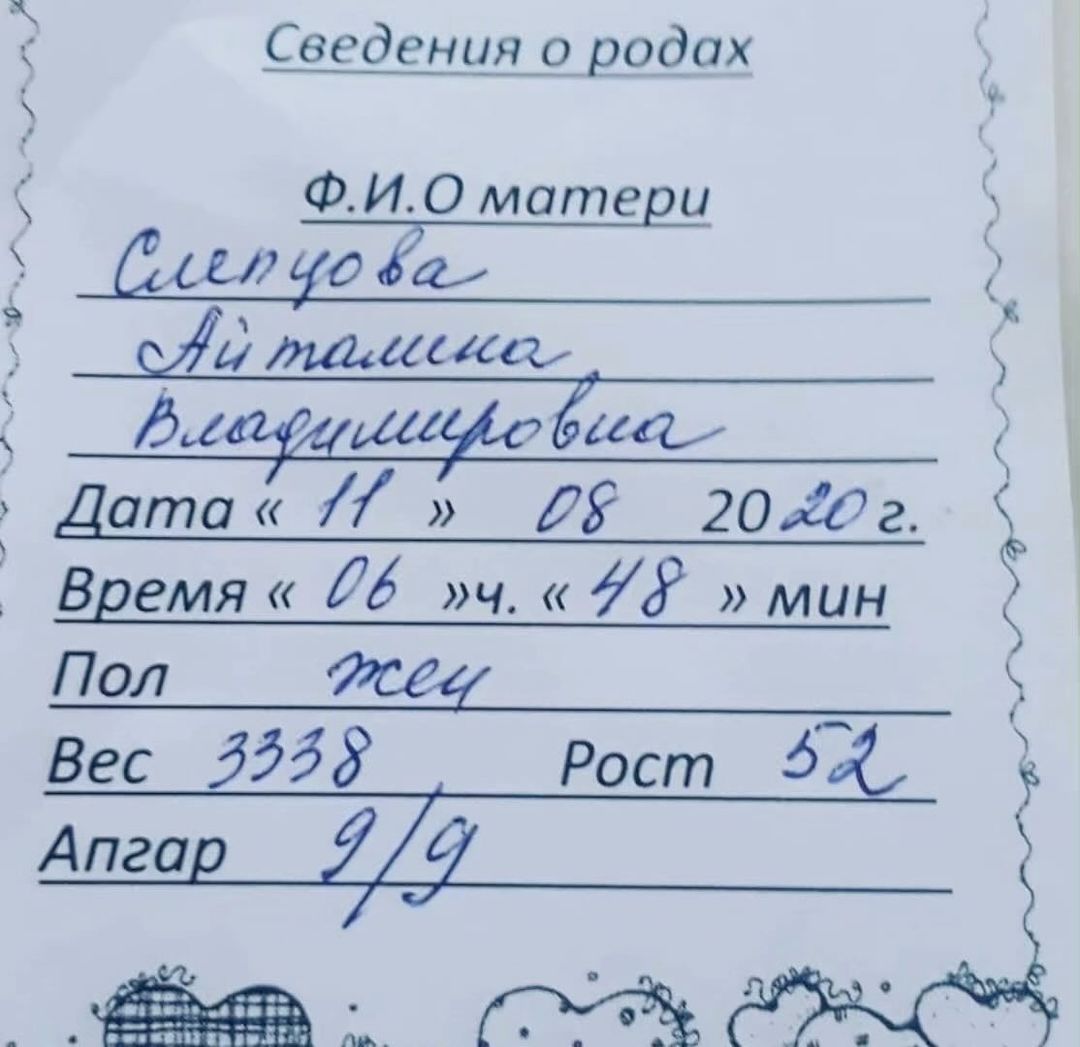 Сведения о родах
Ф.И.О матери
Слепцова
Айталина
Владимировна
Дата « 11 » 08 2020 г.
Время « 06 »ч. « 48 » мин
Пол жен
Вес 3338 Рост 52
Апгар 9/9